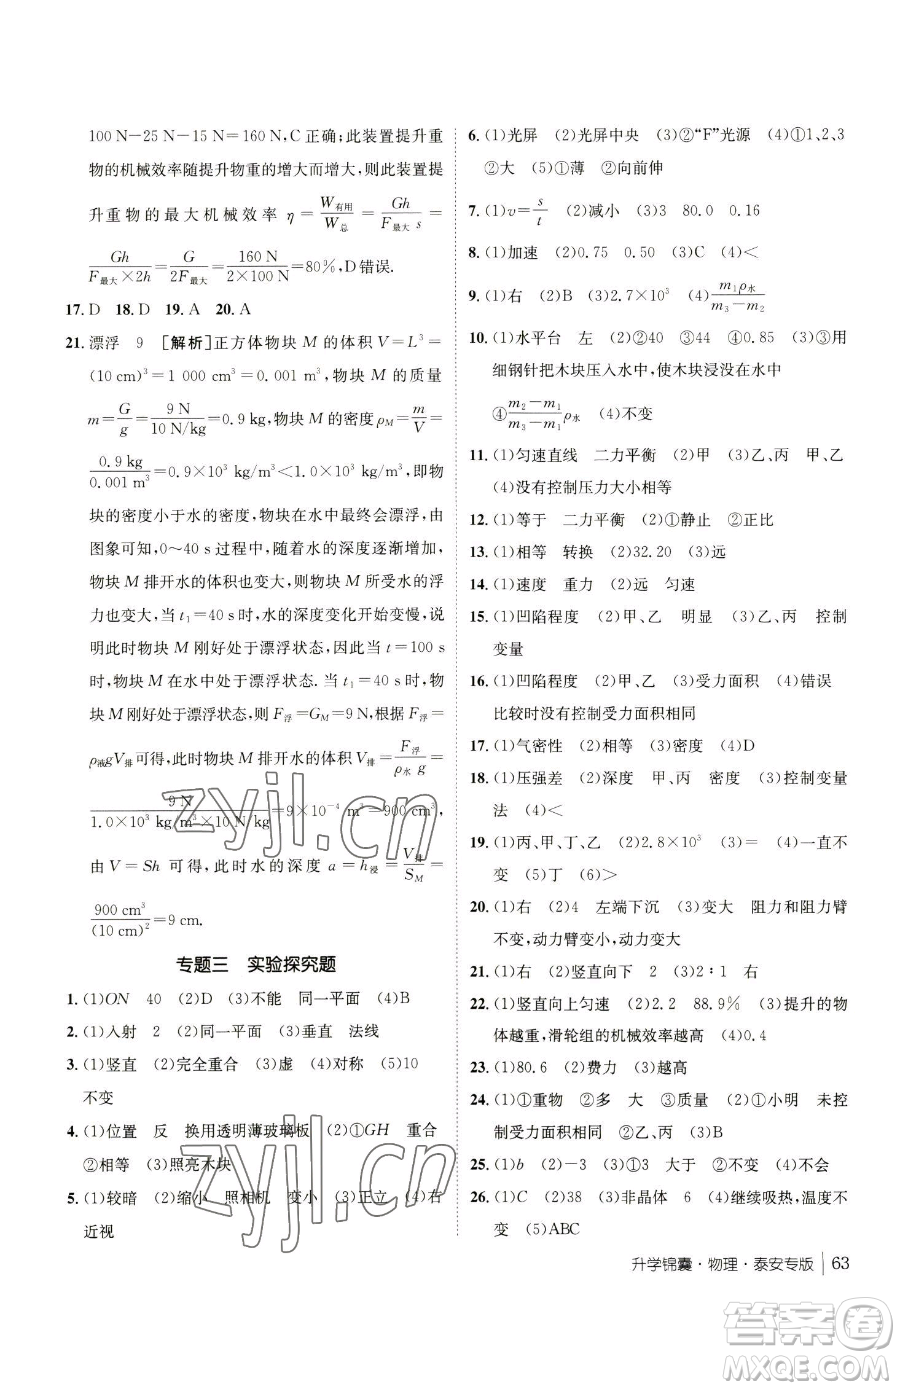 100 N－25 N－15 N＝160 N,C 正确;此装置提升重
物的机械效率随提升物重的增大而增大,则此装置提
升重物的最大机械效率 η＝W有用/W总＝Gh/F最大 s＝
Gh/F最大×2h＝G/2F最大＝160 N/2×100 N＝80%,D 错误.
17. D　18. D　19. A　20. A
21. 漂浮　9　[解析]正方体物块 M 的体积 V＝L³＝
(10 cm)³＝1 000 cm³＝0.001 m³,物块 M 的质量
m＝G/g＝9 N/10 N/kg＝0.9 kg,物块 M 的密度 ρM＝m/V＝
0.9 kg/0.001 m³＝0.9×10³ kg/m³＜1.0×10³ kg/m³,即物
块的密度小于水的密度,物块在水中最终会漂浮,由
图象可知,0～40 s 过程中,随着水的深度逐渐增加,
物块 M 排开水的体积也变大,物块 M 所受水的浮
力也变大,当 t₁＝40 s时,水的深度变化开始变慢,说
明此时物块 M 刚好处于漂浮状态,当 t＝100 s
时,物块 M 在水中处于漂浮状态.因此当 t₁＝40 s时,物
块 M 刚好处于漂浮状态,则 F浮＝GM＝9 N,根据 F浮＝
ρ液gV排可得,物块 M 排开水的体积 V排＝F浮/ρ水 g＝
9 N/1.0×10³ kg/m³×10 N/kg＝9×10⁻⁴ m³＝900 cm³,
由 V＝Sh 可得,此时水的深度 a＝h浸＝V排/SM＝
900 cm³/(10 cm)²＝9 cm.
专题三　实验探究题
1. (1)ON　40　(2)D　(3)不能　同一平面　(4)B
2. (1)入射　2　(2)同一平面　(3)垂直　法线
3. (1)竖直　(2)完全重合　(3)虚　(4)对称　(5)10
不变
4. (1)位置　反　换用透明薄玻璃板　(2)①GH　重合
②相等　(3)照亮木块
5. (1)较暗　(2)缩小　照相机　变小　(3)正立　(4)右
近视
6. (1)光屏　(2)光屏中央　(3)②“F”光源　(4)①1、2、3
②大　(5)①薄　②向前伸
7. (1)v＝s/t　(2)减小　(3)3　80.0　0.16
8. (1)加速　(2)0.75　0.50　(3)C　(4)＜
9. (1)右　(2)B　(3)2.7×10³　(4)m₁ρ水/m₃－m₂
10. (1)水平台　左　(2)②40　③44　④0.85　(3)③用
细钢针把木块压入水中,使木块浸没在水中
④m₂－m₁/m₃－m₁ρ水　(4)不变
11. (1)匀速直线　二力平衡　(2)甲　(3)乙、丙　甲、乙
(4)没有控制压力大小相等
12. (1)等于　二力平衡　(2)①静止　②正比
13. (1)相等　转换　(2)32.20　(3)远
14. (1)速度　重力　(2)远　匀速
15. (1)凹陷程度　(2)甲、乙　明显　(3)乙、丙　控制
变量
16. (1)凹陷程度　(2)甲、乙　(3)受力面积　(4)错误
比较时没有控制受力面积相同
17. (1)气密性　(2)相等　(3)密度　(4)D
18. (1)压强差　(2)深度　甲、丙　密度　(3)控制变量
法　(4)＜
19. (1)丙、甲、丁、乙　(2)2.8×10³　(3)＝　(4)一直不
变　(5)丁　(6)＞
20. (1)右　(2)4　左端下沉　(3)变大　阻力和阻力臂
不变,动力臂变小,动力变大
21. (1)右　(2)竖直向下　2　(3)2∶1　右
22. (1)竖直向上匀速　(2)2.2　88.9%　(3)提升的物
体越重,滑轮组的机械效率越高　(4)0.4
23. (1)80.6　(2)费力　(3)越高
24. (1)①重物　②多　大　(2)①小明　未控
制受力面积相同　②乙、丙　(3)B
25. (1)b　(2)－3　(3)①大于　②不变　(4)不会
26. (1)C　(2)38　(3)非晶体　6　(4)继续吸热,温度不
变　(5)ABC
升学锦囊·物理·泰安专版　63
zyjl.cn
zyjl.cn
答案圈
MXQE.COM